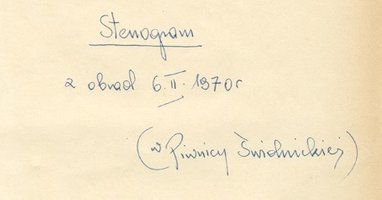 Stenogram
z obrad 6.II.1970r
(w Piwnicy Świdnickiej)